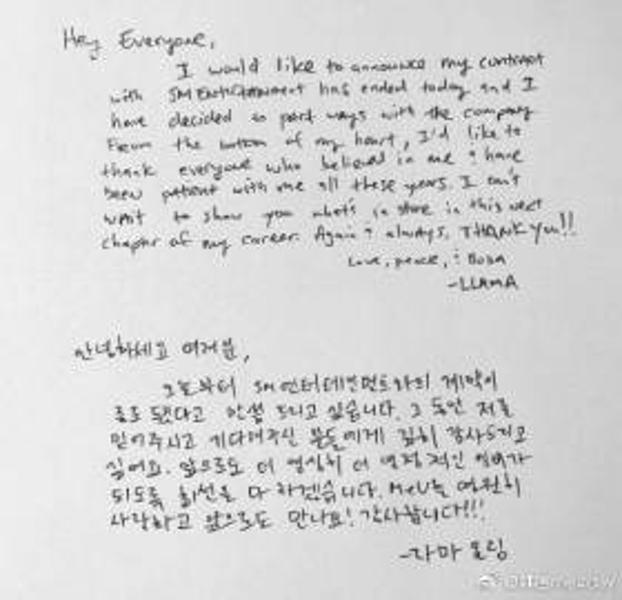 Hey Everyone,
I would like to announce my contract
with SM Entertainment has ended today and I
have decided to part ways with the company
From the bottom of my heart, I'd like to
thank everyone who believed in me & have
been patient with me all these years. I can't
wait to show you what's in store in this next
chapter of my career. Again & always, THANK YOU!!
Love, peace, & Boba
-LLAMA
안녕하세요 여러분,
오늘부터 SM엔터테인먼트와의 계약이
종료됐다고 말씀 드리고 싶습니다. 그 동안 저를
믿어주시고 기다려주신 분들에게 깊이 감사드리고
싶어요. 앞으로도 더 열심히 더 열정적인
되도록 최선을 다 하겠습니다. MeU는 영원히
사랑하고 앞으로도 만나요! 감사합니다!!!
-라마